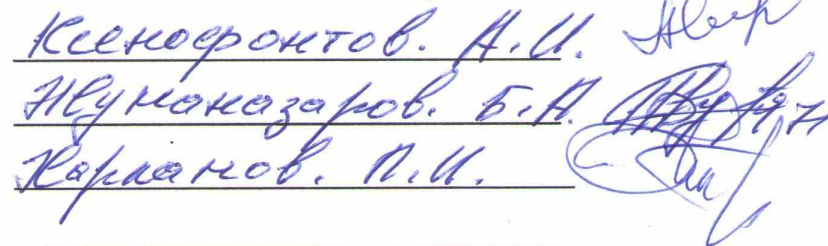 Ксенофонтов. А.И.
Жуманазаров. Б.Н.
Карманов. П.И.